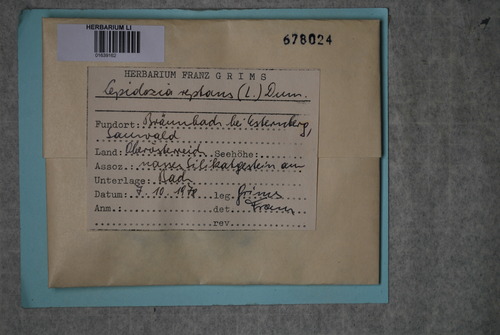 HERBARIUM LI
678024
HERBARIUM FRANZ GRIMS
Lepidozia reptans (L.) Dum.
Fundort: Bräunbach bei Esternberg,
Sauwald
Land: Oberösterreich Seehöhe:
Assoz. nasses Silikatgestein am
Unterlage: Bach
Datum: 7. 10. 1970 leg. Grims
Anm.: det. Franz
rev.